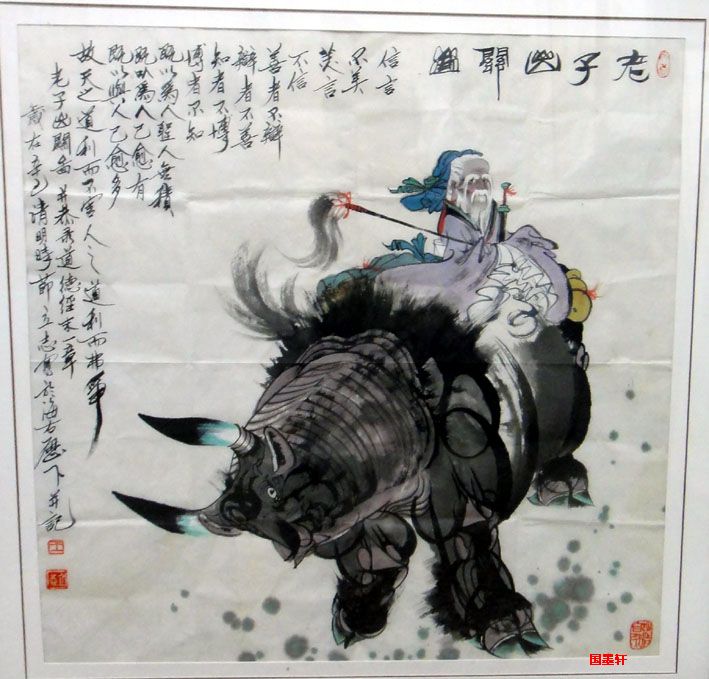 老子出關圖
信言
不美
美言
不信
善者不辯
辯者不善
知者不博
博者不知
既以為人聖人無積
既以為人己愈有
既以與人己愈多
故天之道利而不害人之道利而弗爭
老子出關圖并恭录道德經末一章
歲在辛清明時節立志寫於海右歷下并記
国墨轩